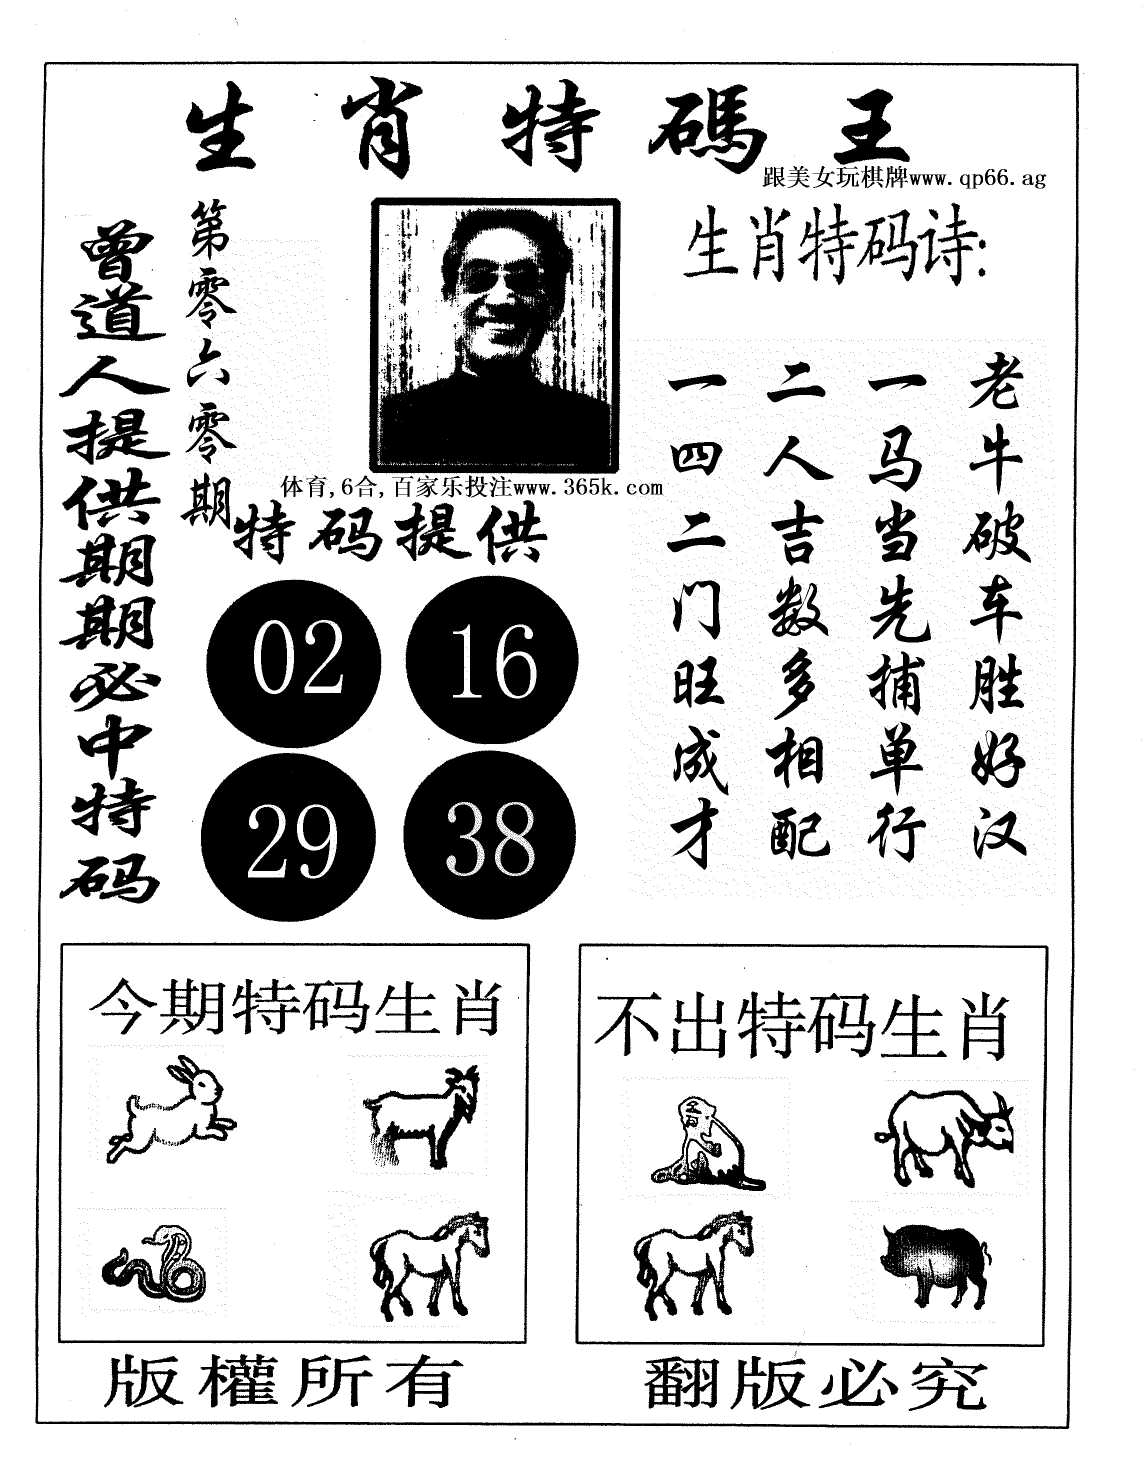 生肖特碼王
跟美女玩棋牌www.qp66.ag
曾道人提供期期必中特码
第零六零期
体育,6合,百家乐投注www.365k.com
特码提供
02
16
29
38
生肖特码诗:
老牛破车胜好汉
一马当先捕单行
二人吉数多相配
一四二门旺成才
今期特码生肖
不出特码生肖
版權所有
翻版必究